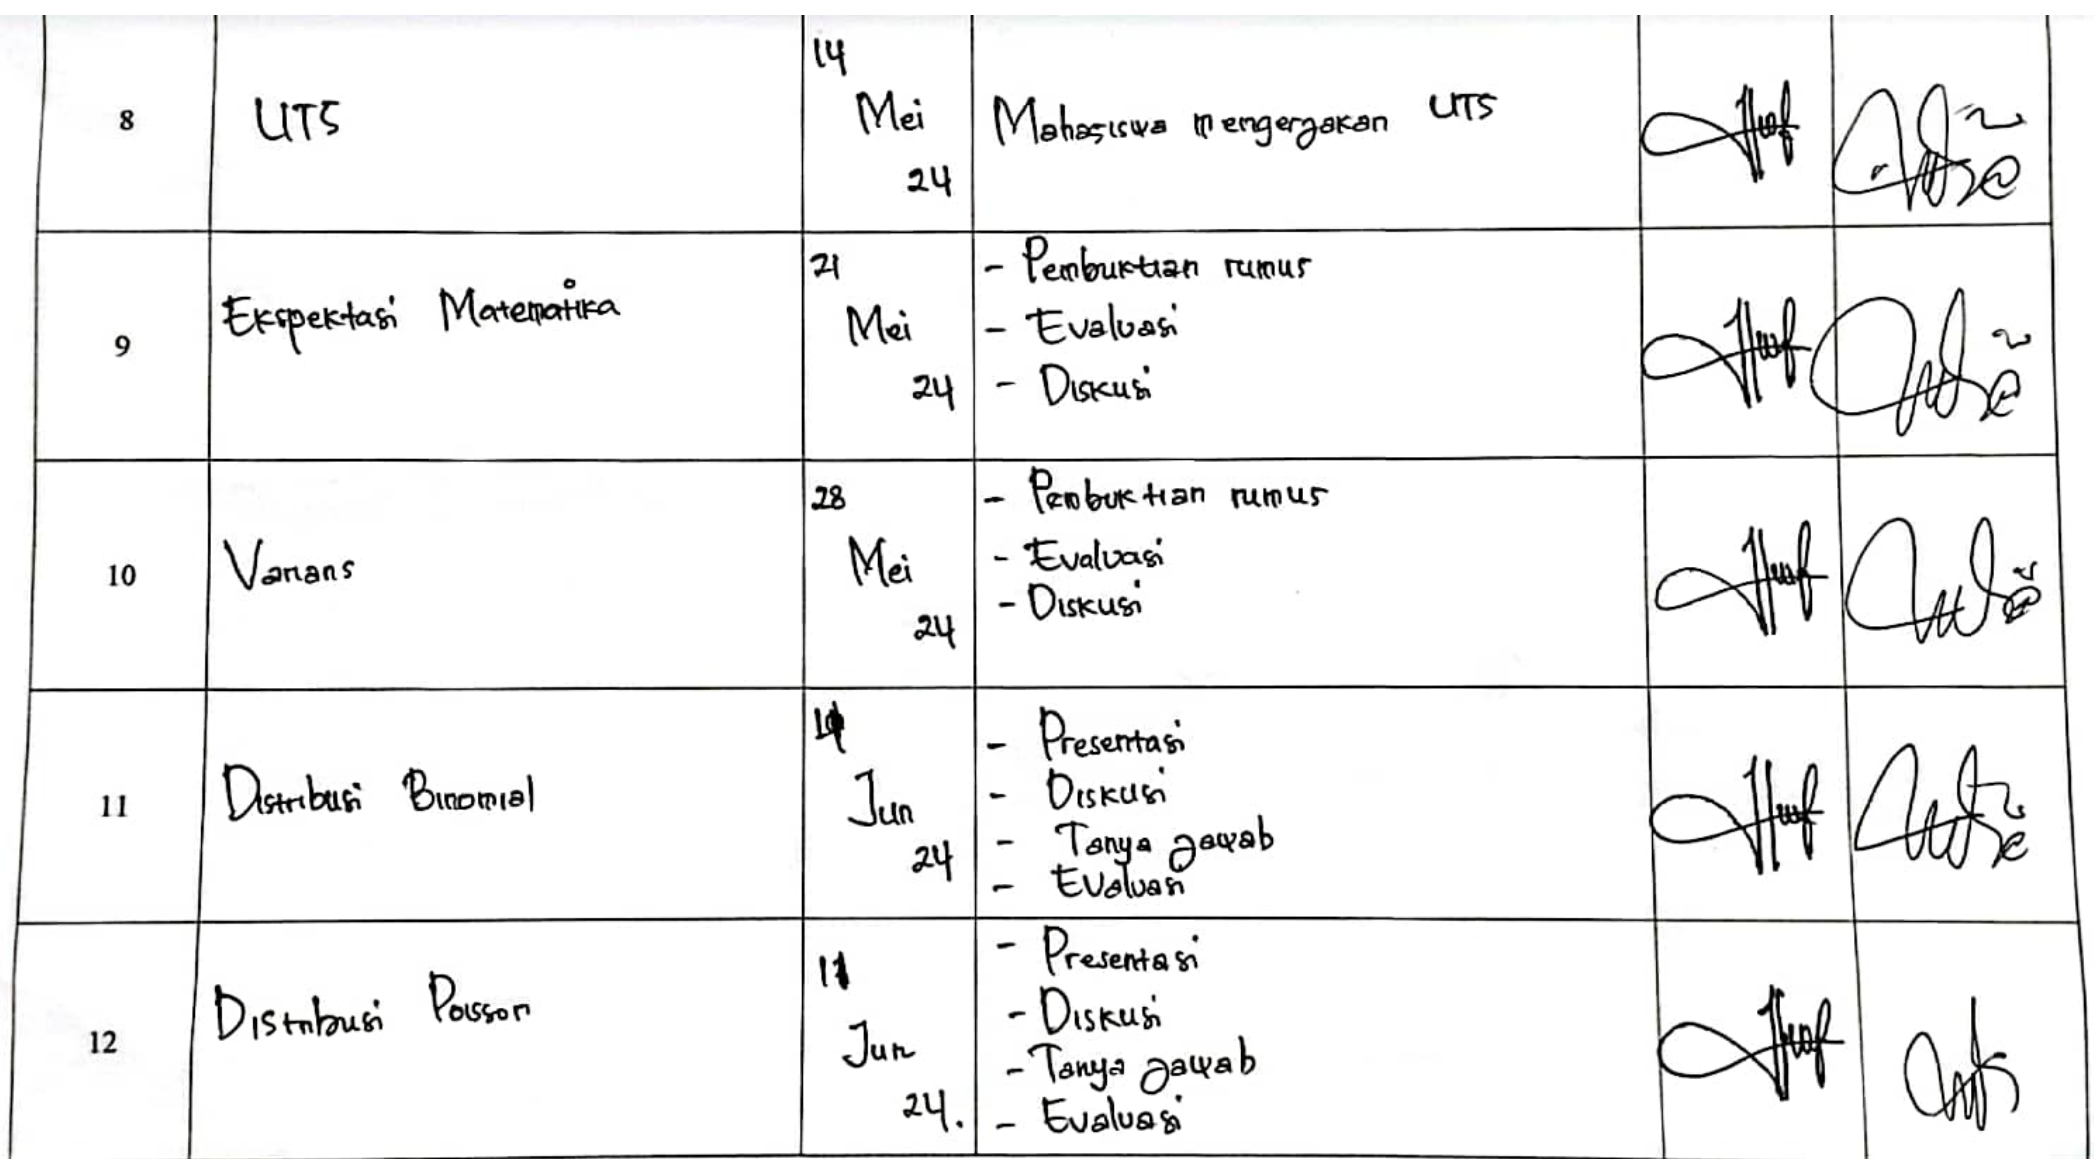 8
UTS
14
Mei
24
Mahasiswa mengerjakan UTS
9
Ekspektasi Matematika
21
Mei
24
- Pembuktian rumus
- Evaluasi
- Diskusi
10
Varians
28
Mei
24
- Pembuktian rumus
- Evaluasi
- Diskusi
11
Distribusi Binomial
Jun
24
- Presentasi
- Diskusi
- Tanya jawab
- Evaluasi
12
Distribusi Poisson
11
Jun
24.
- Presentasi
- Diskusi
- Tanya jawab
- Evaluasi